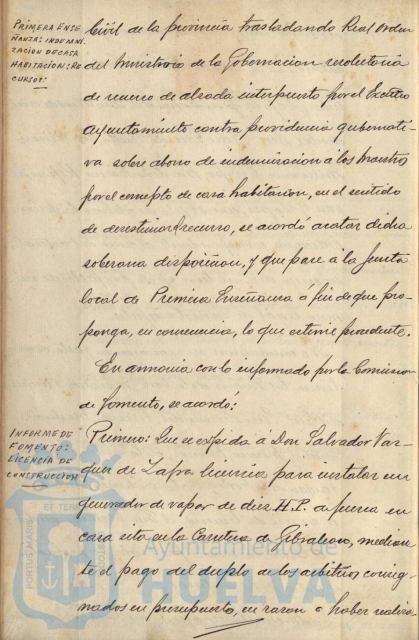 PRIMERA ENSE
ÑANZA: INDEMNI
ZACION DE CASA
HABITACION: RE
CURSO:
Civil de la provincia trasladando Real orden
del Ministerio de la Gobernacion resolutoria
de recurso de alzada interpuesto por el Excmo
Ayuntamiento contra providencia gubernati-
va sobre abono de indemnizacion á los Maestros
por el concepto de casa habitacion, en el sentido
de desestimar el recurso, se acordó acatar dicha
soberana disposicion, y que pase á la Junta
local de Primera Enseñanza á fin de que pro-
ponga, en consecuencia, lo que estime procedente.
En armonia con lo informado por la Comision
de Fomento, se acordó:
INFORME DE
FOMENTO:
LICENCIA DE
CONSTRUCCION
Primero: Que se expida á Don Salvador Vaz-
quez de Zafra licencia para instalar un
generador de vapor de diez H.P. de fuerza en
casa sita en la Carretera de Gibraleon, median-
te el pago del duplo de los arbitrios consig-
nados en presupuesto, en razon á haber realiza-
PORTUS MARIS
ET TERRÆ
Ayuntamiento de
HUELVA